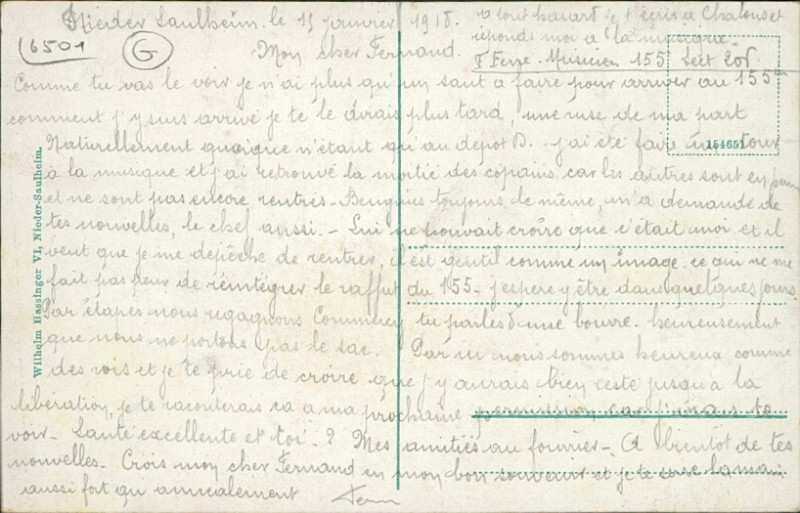 Nieder Saulheim. le 15 janvier 1918.
6501
G
a tout hasard je t'écris a Chalons et
réponds moi a la musique.
F Musicien 155 Sect 205
Mon cher Fernand.
Comme tu vas le voir je n'ai plus qu'un saut a faire pour arriver au 155eme
comment j'y suis arrivé je te le dirais plus tard, une ruse de ma part
Naturellement quoique n'étant qu'au depot D. j'ai été faire un tour
154651
à la musique et j'ai retrouvé la moitié des copains, car les autres sont en perm
et ne sont pas encore rentrés. toujours le même, m'a demandé de
tes nouvelles, le chef aussi. - Lui ne pouvait croire que c'était moi et il
veut que je me dépêche de rentrer, il est gentil comme un image. ce qui ne me
fait pas peur de réintégrer le raffut du 155. j'espere y être dans quelques jours.
Par étapes nous regagnons Commercy tu parles d'une bourre. heureusement
que nous ne portons pas le sac. Par ici nous sommes heureux comme
des rois et je te prie de croire que j'y aurais bien resté jusqu'a la
libération, je te raconterais ca a ma prochaine permission car j'irais te
voir. Santé excellente et toi. ? Mes amitiés au fourrier. A bientot de tes
nouvelles. Crois mon cher Fernand en mon bon souvenir et je te serre la main
aussi fort qu'amicalement
Wilhelm Bassinger VI, Nieder-Saulheim.